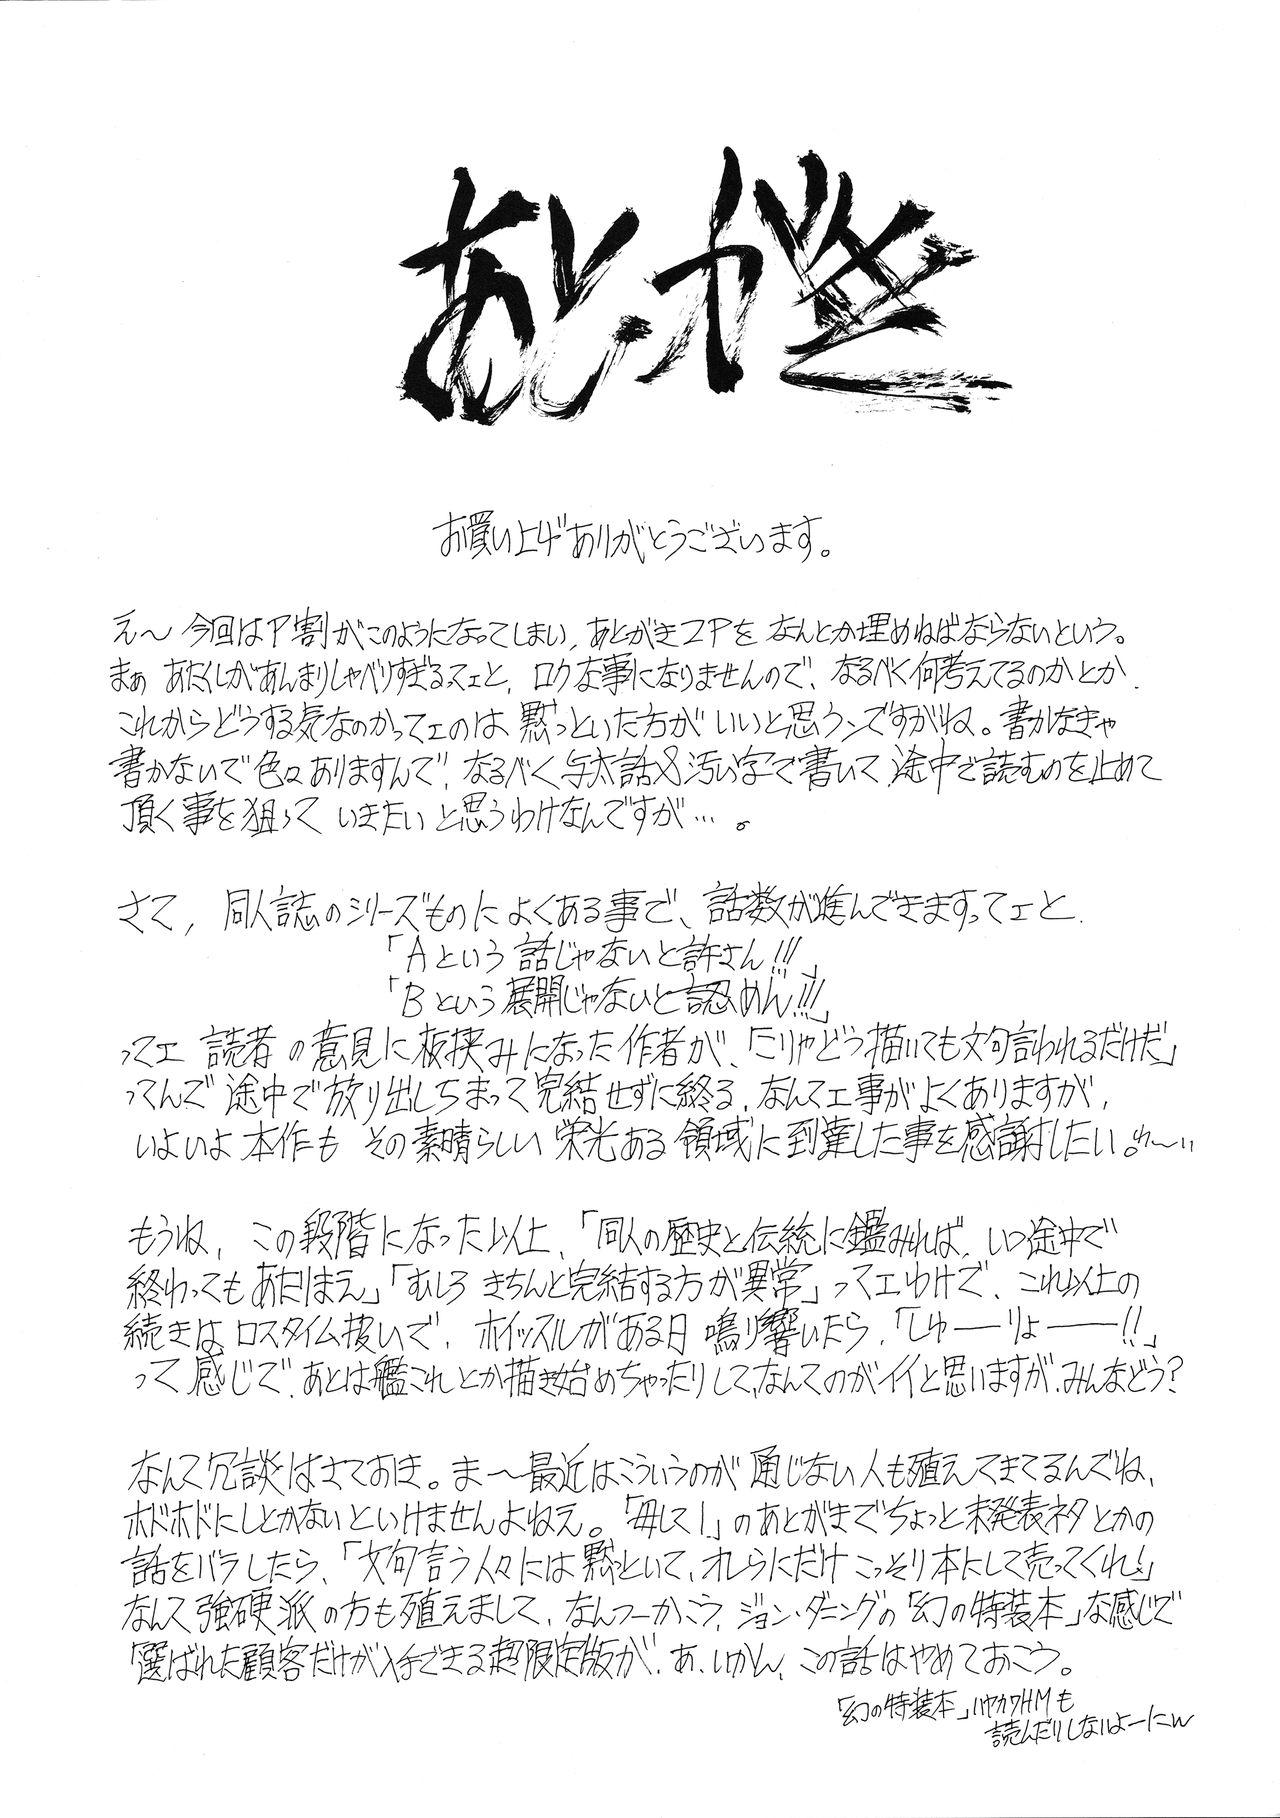 あとがき
お買い上げありがとうございます。
え〜今回はP割がこのようになってしまい、あとがき2Pをなんとか埋めねばならないという。
まぁあたくしがあんまりしゃべりすぎるってェと、ロクな事になりませんので、なるべく何考えてるのかとか
これからどうする気なのかってェのは黙っといた方がいいと思うンですがね。書かなきゃ
書かないで色々ありますんで、なるべく与太話&汚い字で書いて途中で読むのを止めて
頂く事を狙っていきたいと思うわけなんですが…。
さて、同人誌のシリーズものによくある事で、話数が進んできますってェと、
「Aという話じゃないと許さん!!!」
「Bという展開じゃないと認めん!!!」
ってェ読者の意見に板挟みになった作者が、「こりゃどう描いても文句言われるだけだ」
ってんで途中で放り出しちまって完結せずに終る、なんてェ事がよくありますが、
いよいよ本作もその素晴らしい栄光ある領域に到達した事を感謝したい。
もうね、この段階になった以上、「同人の歴史と伝統に鑑みれば、いつ途中で
終わってもあたりまえ」「むしろきちんと完結する方が異常」ってェわけで、これ以上の
続きはロスタイム扱いで、ホイッスルがある日鳴り響いたら、「しゅーーりょーーー!!」
って感じで、あとは艦これとか描き始めちゃったりして、なんてのがイイと思いますが、みんなどう?
なんて冗談はさておき。ま〜最近はこういうのが通じない人も殖えてきてるんでね、
ホドホドにしとかないといけませんよねえ。「毎して!」のあとがきでちょっと未発表ネタとかの
話をバラしたら、「文句言う人々には黙っといて、オレらにだけこっそり本にして売ってくれ!」
なんて強硬派の方も殖えまして、なんつーかこう、ジョン・ダニングの「幻の特装本」な感じで
「選ばれた顧客だけが入手できる超限定版が、あ、いかん、この話はやめておこう。
「幻の特装本」ハヤカワHMも
読んだりしないよーにw